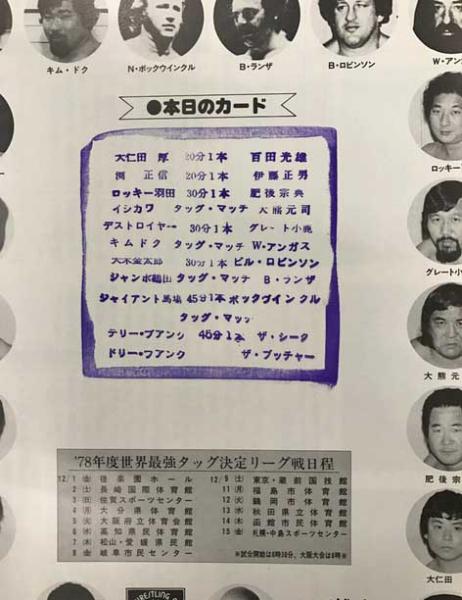 キム・ドク
N・ボックウインクル
B・ランザ
B・ロビンソン
W・アン
●本日のカード
大仁田 厚 20分1本 百田光雄
渕 正信 20分1本 伊藤正男
ロッキー羽田 30分1本 肥後宗典
イシカワ タッグ・マッチ 大熊元司
デストロイヤー 30分1本 グレート小鹿
キムドク タッグ・マッチ W・アンガス
大木金太郎 30分1本 ビル・ロビンソン
ジャンボ鶴田 タッグ・マッチ B・ランザ
ジャイアント馬場 45分1本 ボックウインクル
タッグ・マッチ
テリー・フアンク 45分1本 ザ・シーク
ドリー・フアンク ザ・ブッチャー
ロッキー
グレート小
大熊元
肥後宗
大仁田
'78年度世界最強タッグ決定リーグ戦日程
12/1(金) 後楽園ホール
2(土) 長崎国際体育館
3(日) 佐賀スポーツセンター
4(月) 大分県体育館
5(火) 大阪府立体育会館
6(水) 高知県民体育館
7(木) 松山・愛媛県民館
8(金) 岐阜市民センター
12/9(土) 東京・蔵前国技館
11(月) 福島市体育館
12(火) 鶴岡市体育館
13(水) 秋田県立体育館
14(木) 函館市民体育館
15(金) 札幌・中島スポーツセンター
※試合開始は6時30分、大阪大会は6時※
WRESTLING